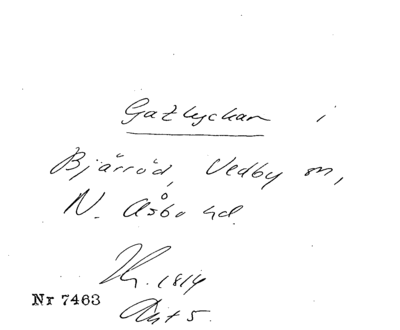 Gatlyckan i
Bjärröd, Vedby sn,
N. Åsbo hd.
1814
Nr 7463
Akt 5.